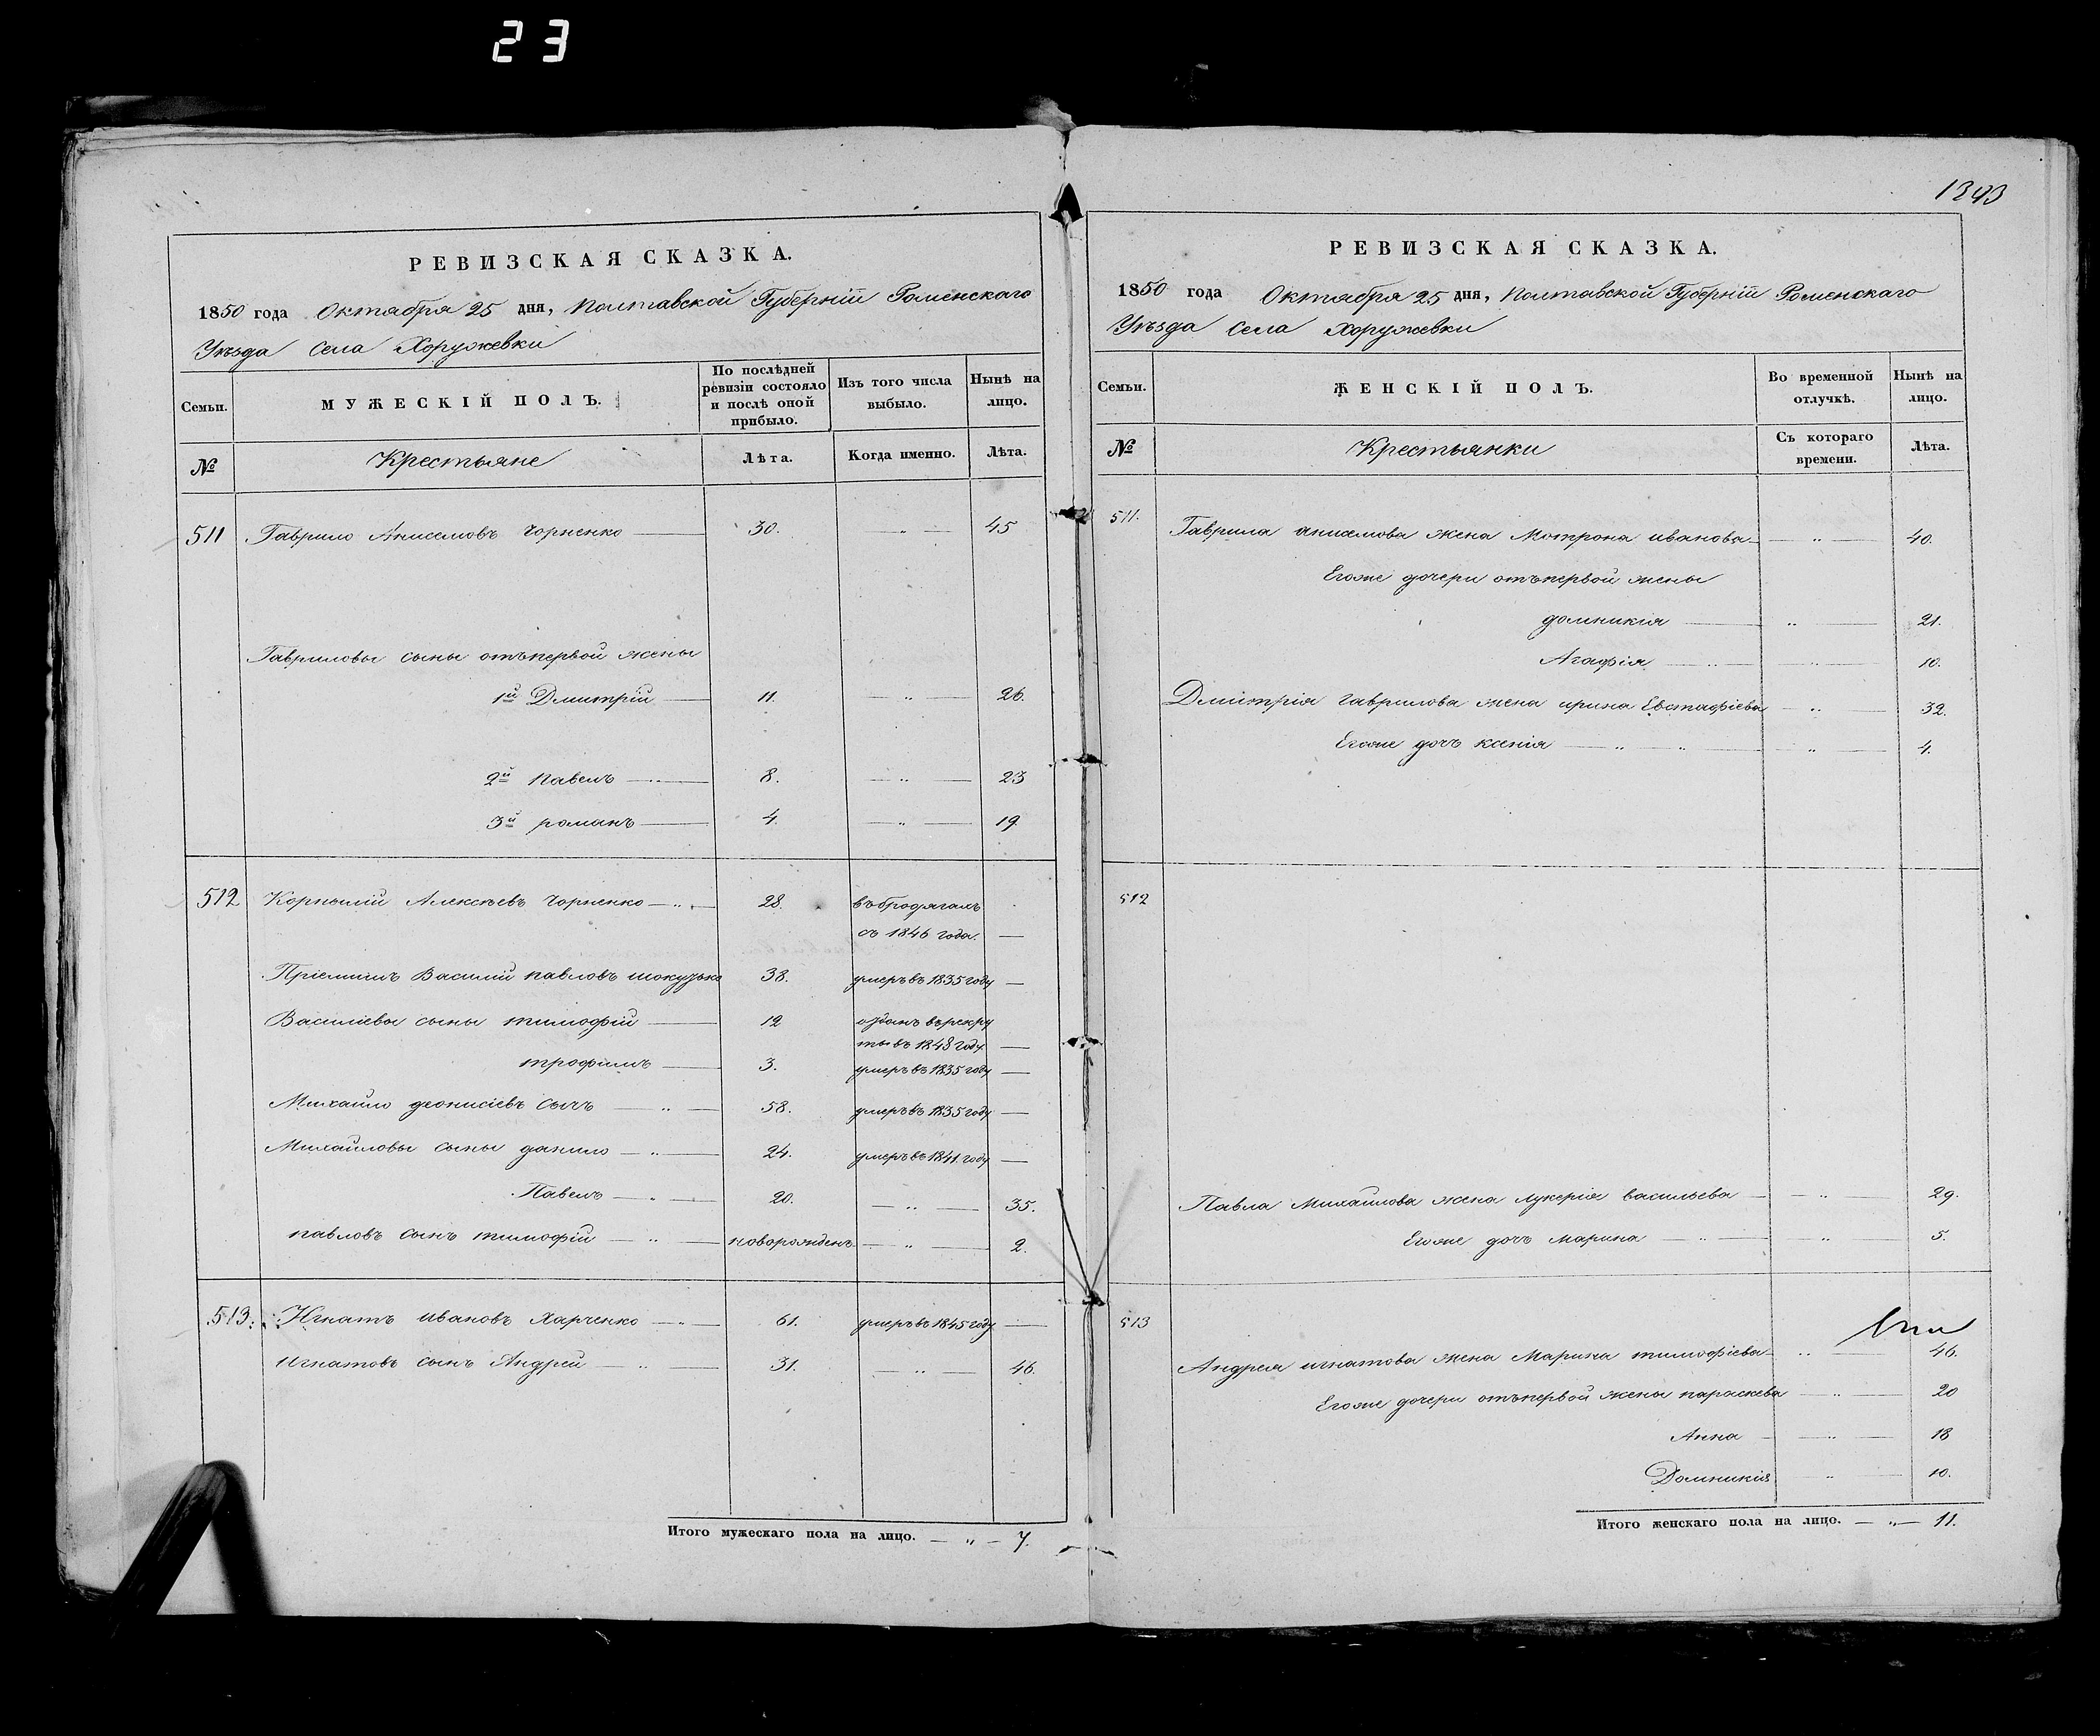 23
РЕВИЗСКАЯ СКАЗКА.
1850 года Октября 25 дня, Полтавской Губерніи Роменскаго
Уѣзда Села Хоружевки
Семьи.
МУЖЕСКІЙ ПОЛЪ.
По послѣдней ревизіи состояло и послѣ оной прибыло.
Изъ того числа выбыло.
Нынѣ на лицо.
№
Крестьяне
Лѣта.
Когда именно.
Лѣта.
511 Гаврило Анисемовъ Чорненко — 30. — „ — 45
Гавриловы сыны отъ первой жены
1й Дмитрій — 11. — „ — 26.
2й Павелъ — „ — 8. — „ — 23
3й романъ — 4. — „ — 19
512 Корнилій Алексѣевъ Чорненко — „ — 28. въ бродягахъ
съ 1846 года. —
Пріемышъ Василій павловъ 38. умеръ въ 1835 году —
Василіевы сыны тимофій — 12 отданъ въ рекру
ты въ 1848 году. —
трофимъ — 3. умеръ въ 1835 году —
Михайло деонисіевъ Сычъ — „ — 58. умеръ въ 1835 году —
Михайловы сыны данило — „ — 24. умеръ въ 1841 году —
Павелъ — „ — 20. — „ — 35.
павловъ сынъ тимофій — „ — новорожденъ — „ — 2.
513. Игнатъ Ивановъ Харченко — „ — 61. умеръ въ 1845 году —
Игнатовъ сынъ Андрей — „ — 31. — „ — 46.
Итого мужескаго пола на лицо. — „ — 7.
1343
РЕВИЗСКАЯ СКАЗКА.
1850 года Октября 25 дня, Полтавской Губерніи Роменскаго
Уѣзда Села Хоружевки
Семьи.
ЖЕНСКІЙ ПОЛЪ.
Во временной отлучкѣ.
Нынѣ на лицо.
№
Крестьянки
Съ котораго времени.
Лѣта.
511. Гаврила анисемова жена Мотрона иванова — „ — 40.
Егоже дочери отъ первой жены
домникія — „ — 21.
Агафія — „ — 10.
Дмитрія гаврилова жена ирина Евстафіева — „ — 32.
Егоже дочь ксенія — „ — „ — „ — 4.
512
Павла Михайлова жена лукерія васильева — „ — 29.
Егоже дочь марина — „ — „ — 5.
513
Андрея игнатова жена Марина тимофіева — „ — 46.
Егоже дочери отъ первой жены параскева — „ — 20
Анна — „ — 18
Домникія „ — 10.
Итого женскаго пола на лицо. — „ — 11.